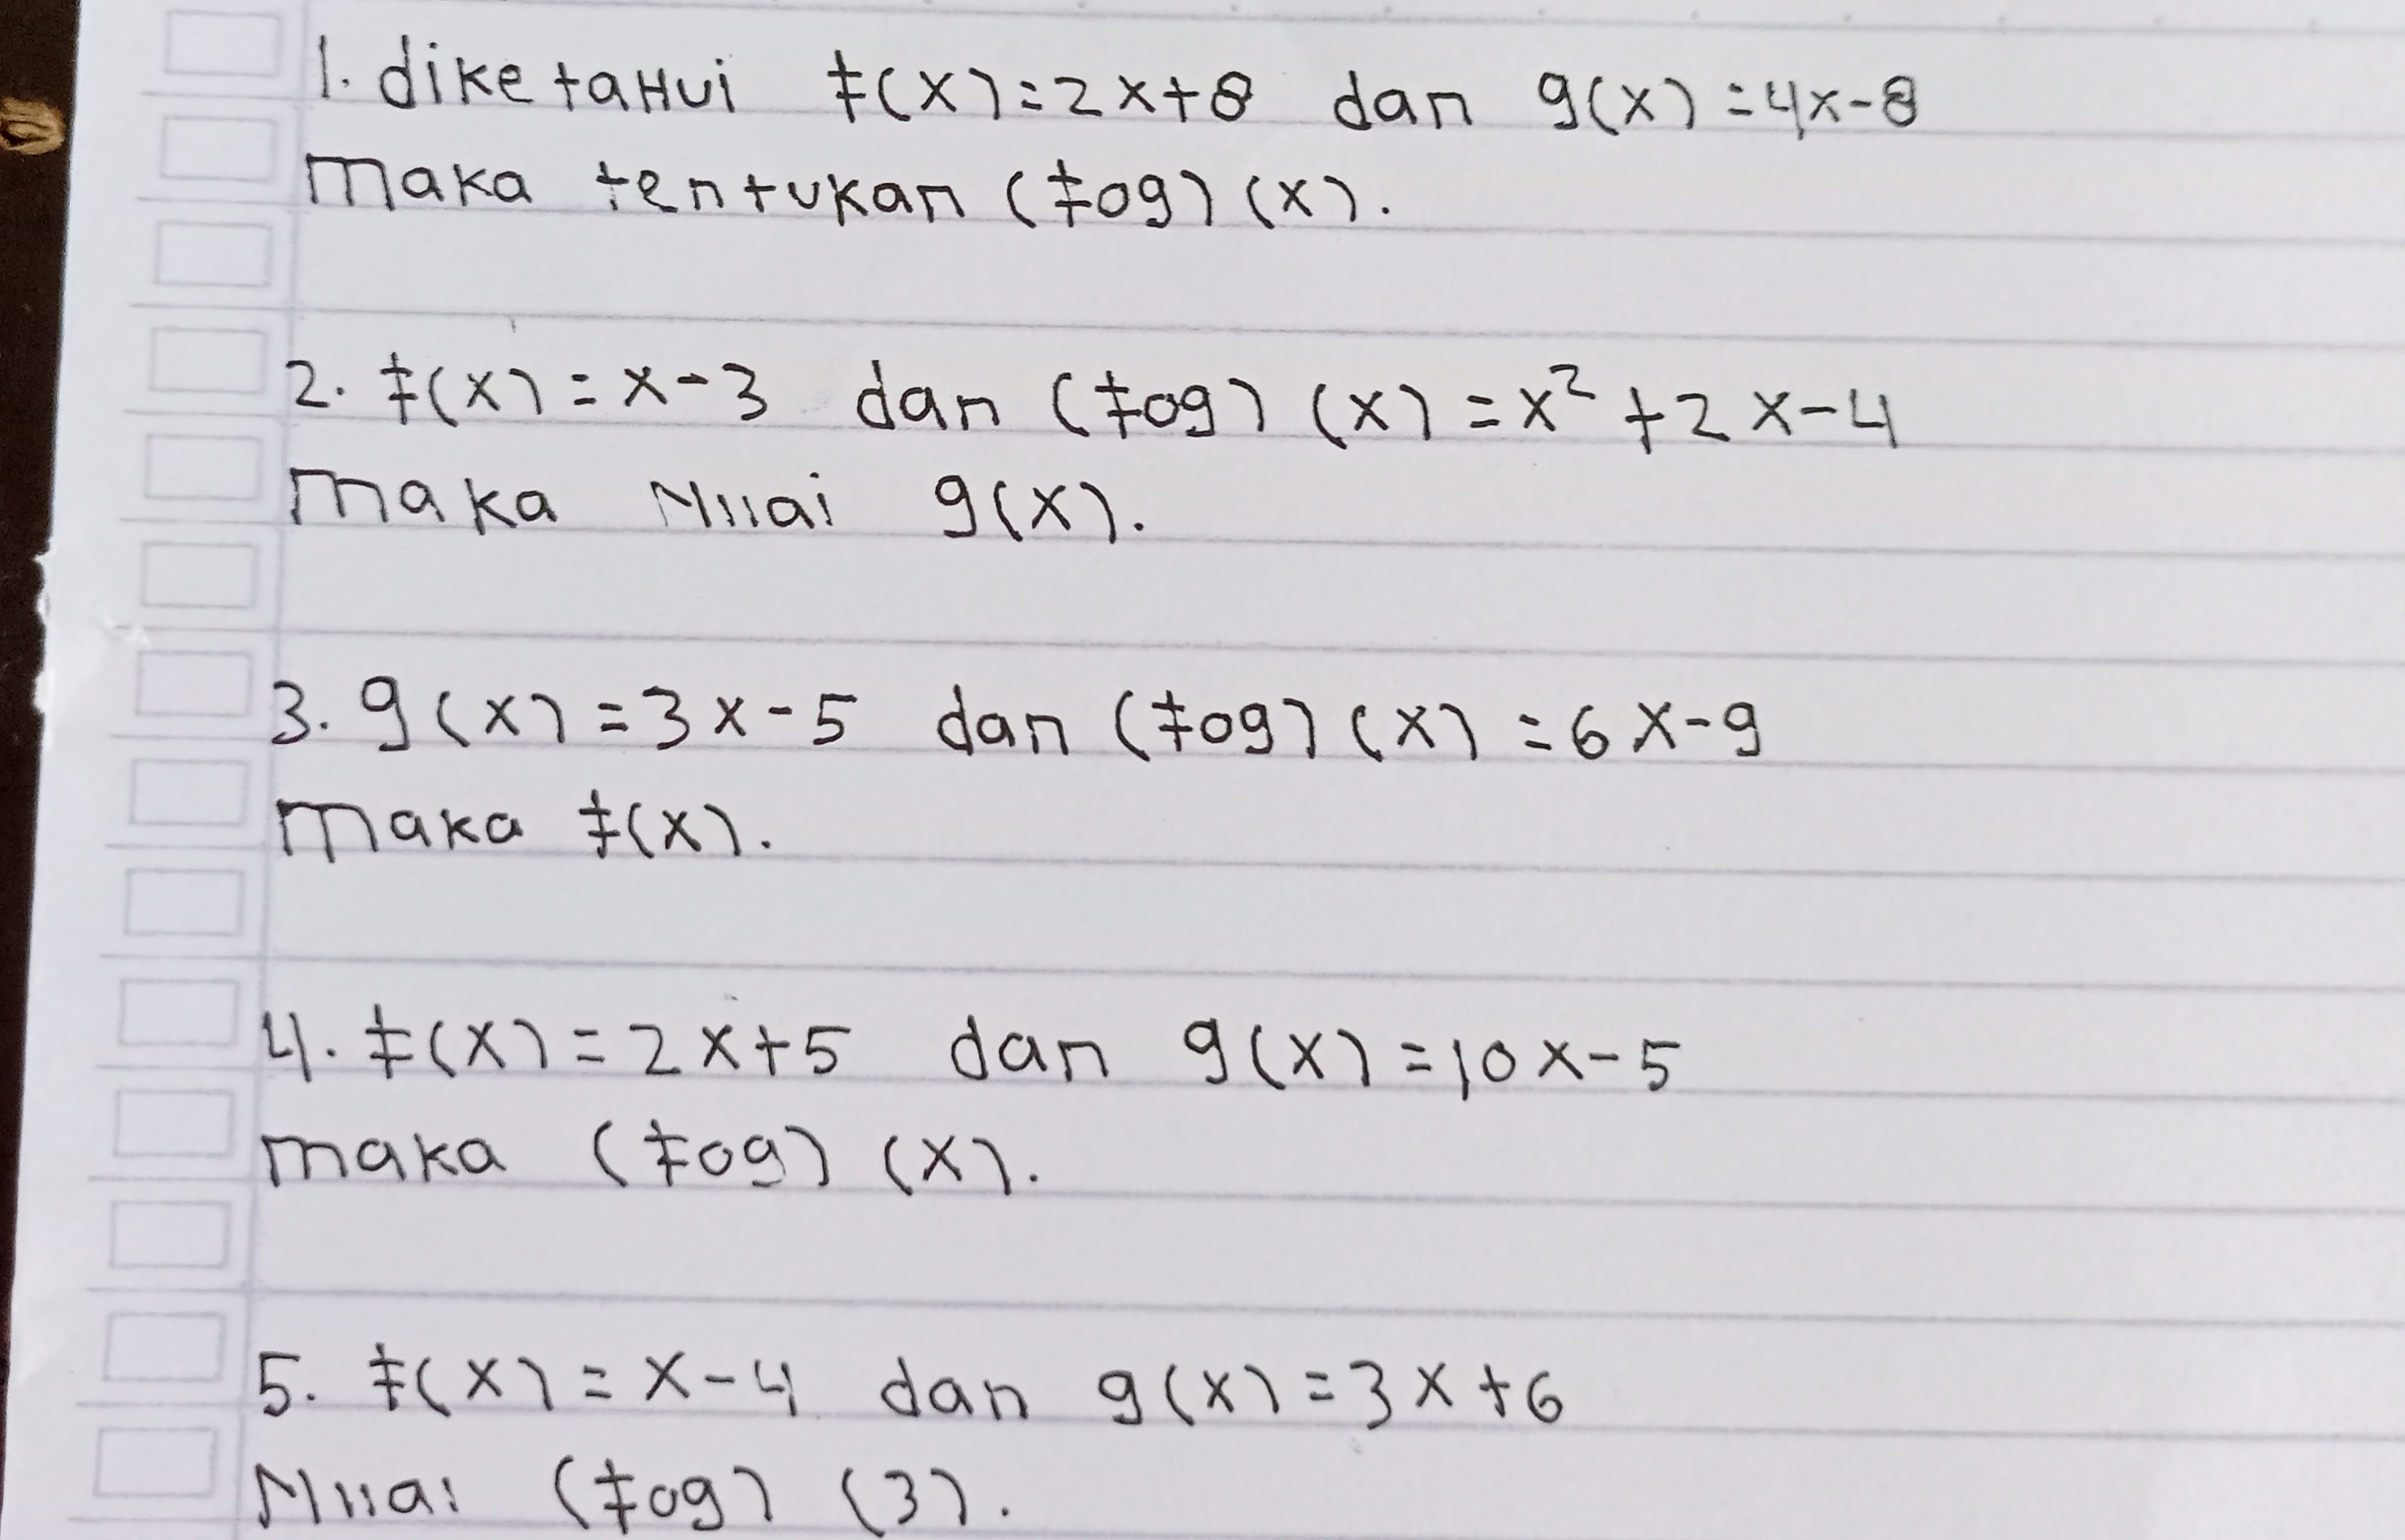 1. diketaHui f(x)=2x+8 dan g(x)=4x-8
maka tentukan (fog) (x).
2. f(x)=x-3 dan (fog) (x)=x²+2x-4
maka Nilai g(x).
3. g(x)=3x-5 dan (fog) (x)=6x-9
maka f(x).
4. f(x)=2x+5 dan g(x)=10x-5
maka (fog) (x).
5. f(x)=x-4 dan g(x)=3x+6
Nilai (fog) (3).